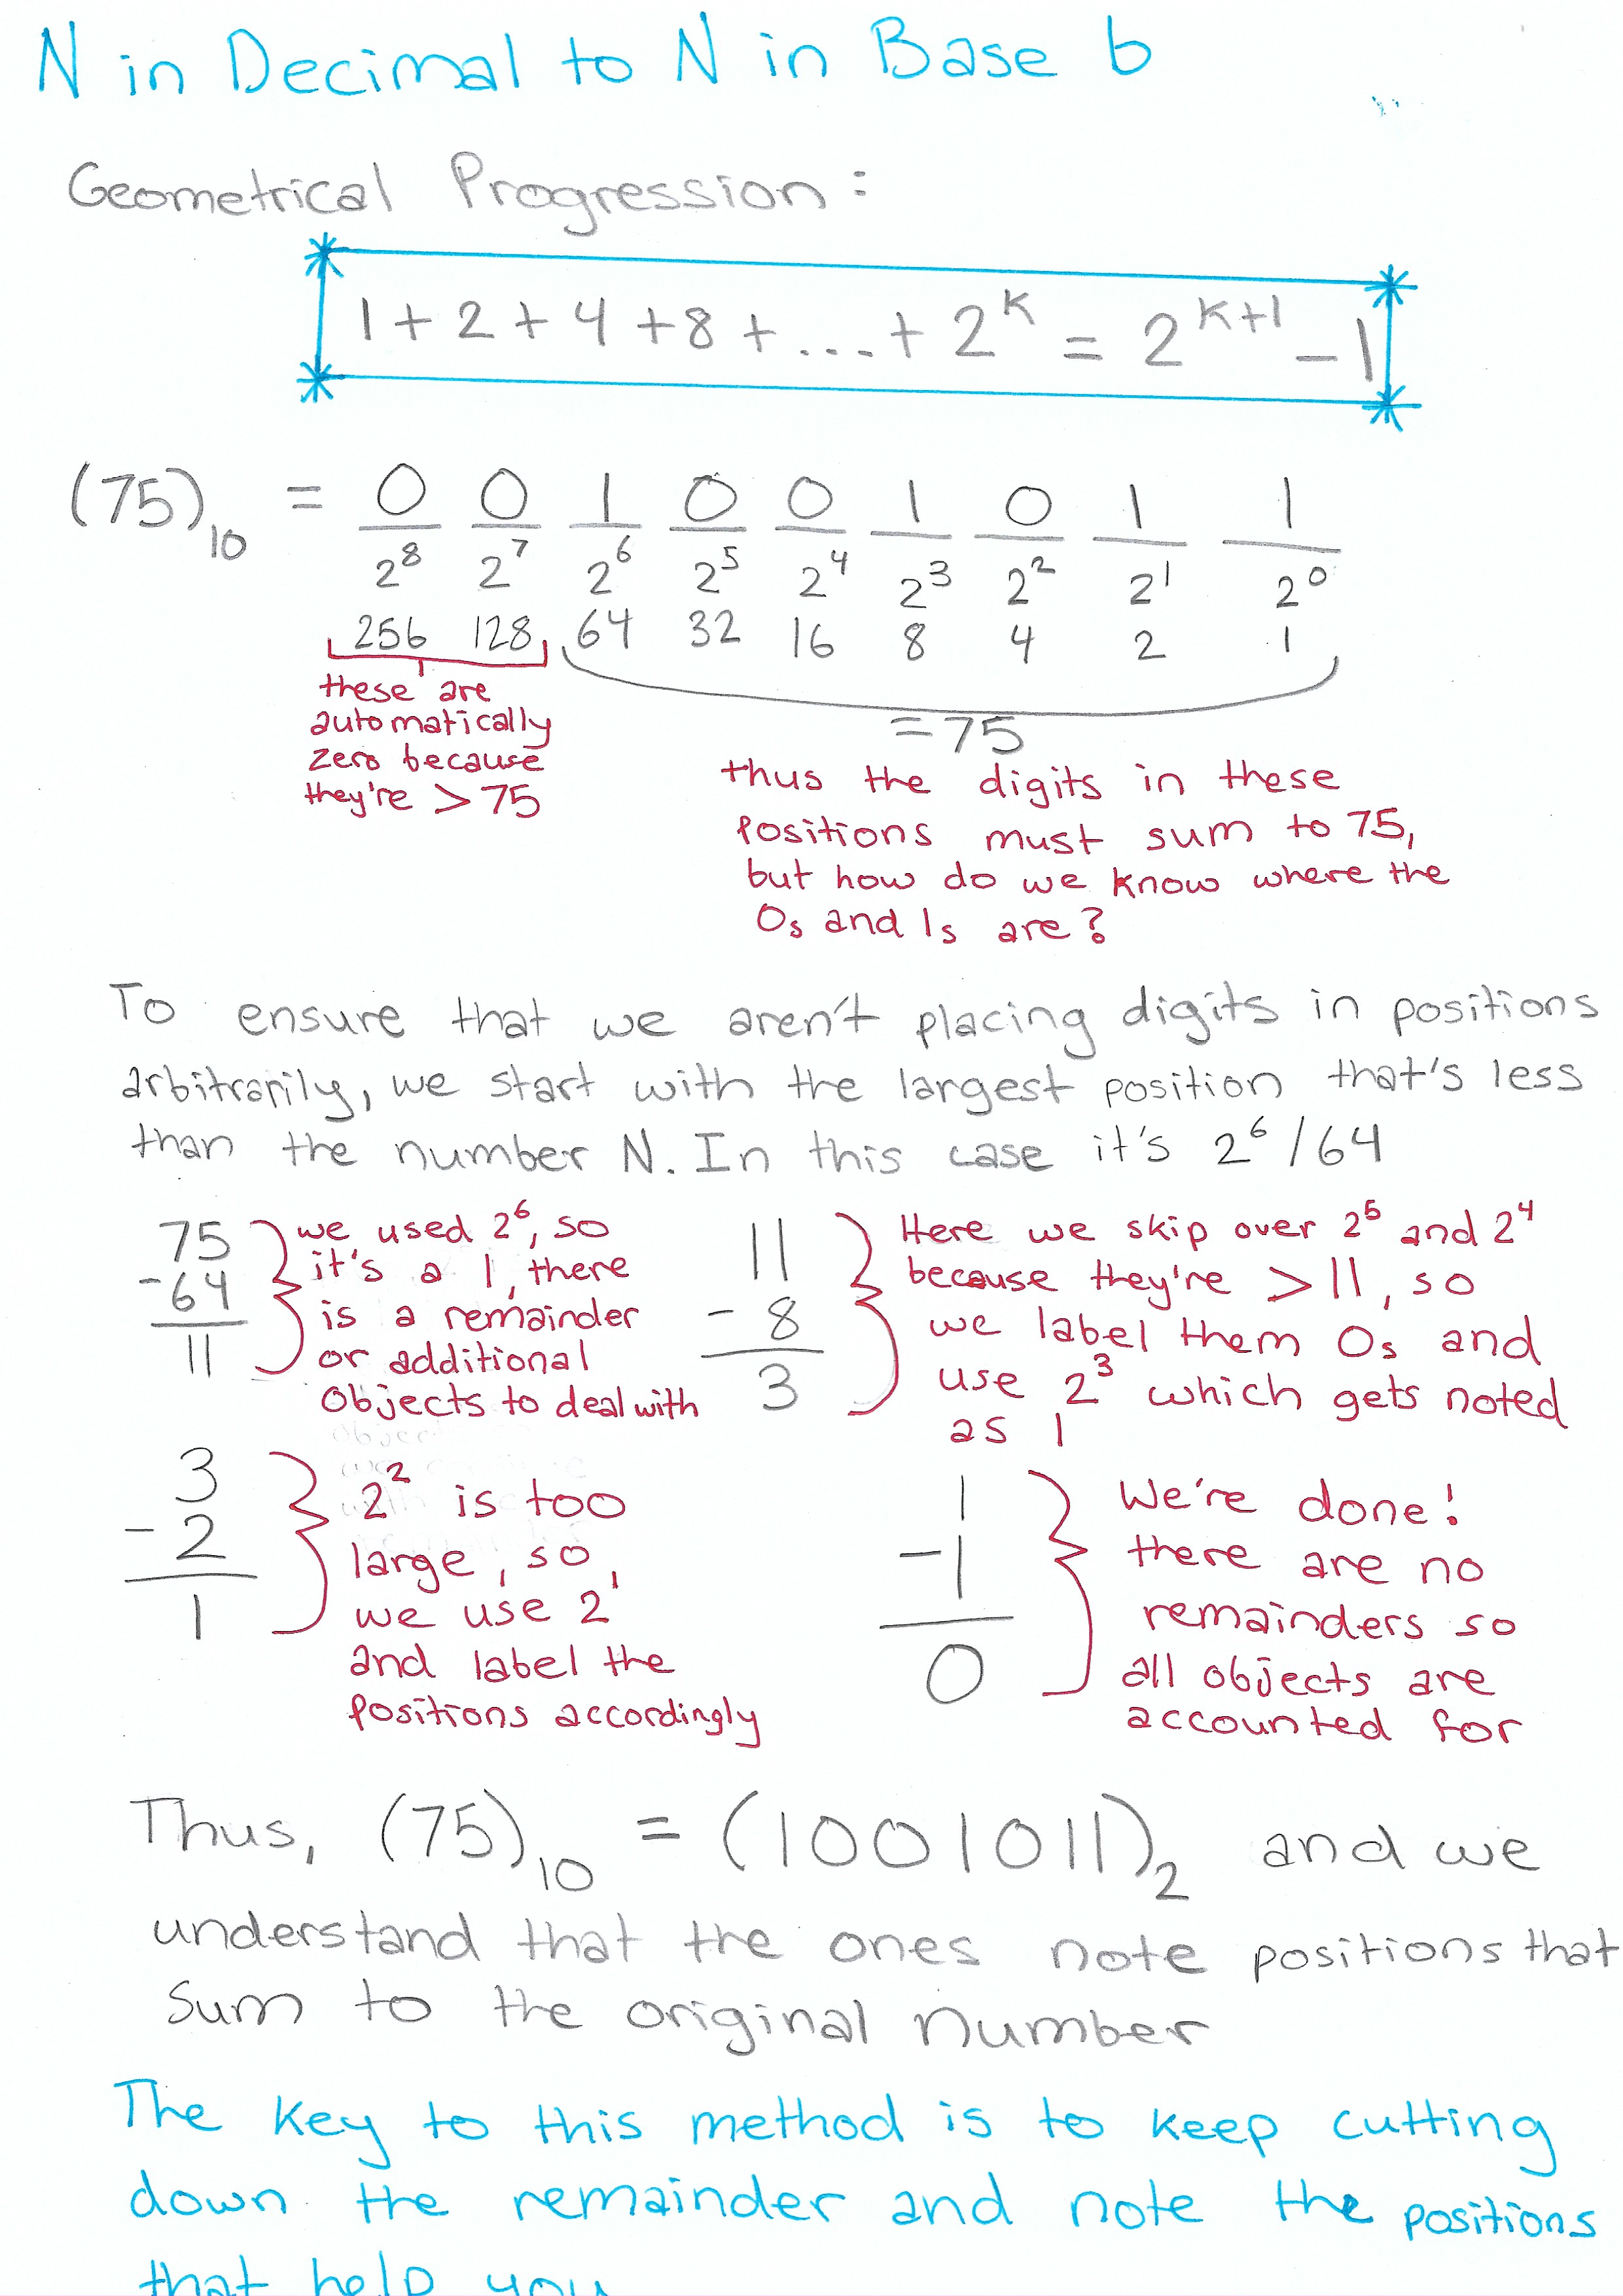 N in Decimal to N in Base b
Geometrical Progression:
1 + 2 + 4 + 8 + ... + 2^k = 2^(k+1) - 1
(75)₁₀ = 0 0 1 0 0 1 0 1 1
2⁸ 2⁷ 2⁶ 2⁵ 2⁴ 2³ 2² 2¹ 2⁰
256 128 64 32 16 8 4 2 1
these are
automatically
zero because
they're > 75
= 75
thus the digits in these
positions must sum to 75,
but how do we know where the
0s and 1s are?
To ensure that we aren't placing digits in positions
arbitrarily, we start with the largest position that's less
than the number N. In this case it's 2⁶/64
75
-64
11
we used 2⁶, so
it's a 1, there
is a remainder
or additional
objects to deal with
11
- 8
3
Here we skip over 2⁵ and 2⁴
because they're > 11, so
we label them 0s and
use 2³ which gets noted
as 1
3
- 2
1
2² is too
large, so
we use 2¹
and label the
positions accordingly
1
-1
0
We're done!
there are no
remainders so
all objects are
accounted for
Thus, (75)₁₀ = (1001011)₂ and we
understand that the ones note positions that
sum to the original number
The key to this method is to keep cutting
down the remainder and note the positions
that help you